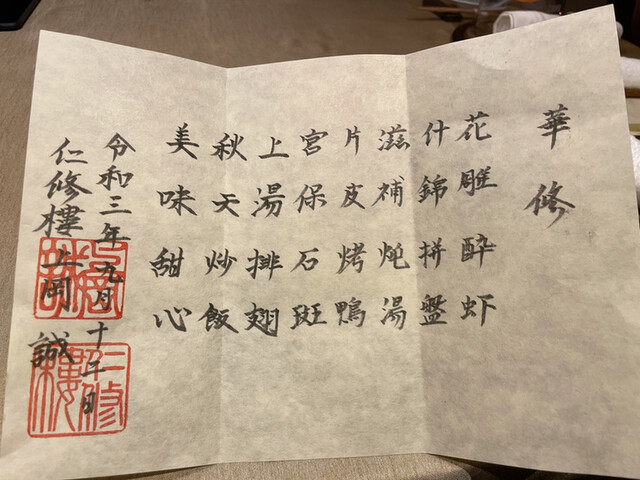 華修
花雕酔虾
什錦拼盤
滋補炖湯
片皮烤鴨
宮保石斑
上湯排翅
秋天炒飯
美味甜心
令和三年九月十二日
仁修樓上岡誠